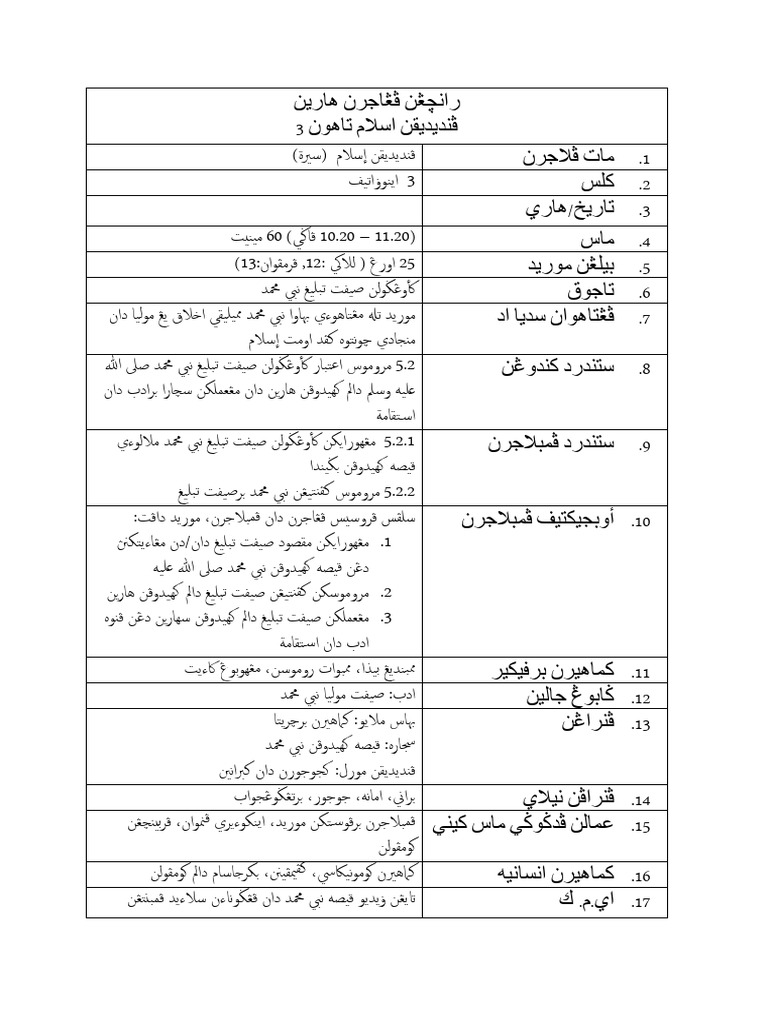 رانچڠن ڤڠاجرن هارين
ڤنديديقن اسلام تاهون 3
1. مات ڤلاجرن
ڤنديديقن إسلام (سيرة)
2. كلس
3 اينوۏاتيف
3. تاريخ/هاري
4. ماس
(11.20 – 10.20 ڤاݢي) 60 مينيت
5. بيلڠن موريد
25 اورڠ ( للاكي :12, ڤرمڤوان:13)
6. تاجوق
كأوڠݢولن صيفت تبليغ نبي محمد
7. ڤڠتاهوان سديا اد
موريد تله مڠتاهوءي بهاوا نبي محمد ميليقي اخلاق يڠ موليا دان
منجادي چونتوه كڤد اومت إسلام
8. ستندرد كندوڠن
5.2 مروموس اعتبار كأوڠݢولن صيفت تبليغ نبي محمد صلى الله
عليه وسلم دالم كهيدوڤن هارين دان مڠعملكن سچارا برادب دان
استقامة
9. ستندرد ڤمبلاجرن
5.2.1 مڠهورايكن كأوڠݢولن صيفت تبليغ نبي محمد ملالوءي
قيصه كهيدوڤن بݢيندا
5.2.2 مروموس كڤنتيڠن نبي محمد برصيفت تبليغ
10. أوبجيكتيف ڤمبلاجرن
سلڤس ڤروسيس ڤڠاجرن دان ڤمبلاجرن، موريد داڤت:
1. مڠهورايكن مقصود صيفت تبليغ دان/دن مڠاءيتكنن
دڠن قيصه كهيدوڤن نبي محمد صلى الله عليه
2. مروموسكن كڤنتيڠن صيفت تبليغ دالم كهيدوڤن هارين
3. مڠعملكن صيفت تبليغ دالم كهيدوڤن سهارين دڠن ڤنوه
ادب دان استقامة
11. كماهيرن برفيكير
ممبنديڠ بيذا، ممبوات روموسن، مڠهوبوڠ كاءيت
12. ݢابوڠ جالين
ادب: صيفت موليا نبي محمد
13. ڤنراڠن
بهاس ملايو: كماهيرن برچريتا
سجاره: قيصه كهيدوڤن نبي محمد
ڤنديديقن مورل: كجوجورن دان كبرانين
14. ڤنراڤن نيلاي
براني، امانه، جوجور، برتڠݢوڠجواب
15. عمالن ڤدݢوݢي ماس كيني
ڤمبلاجرن برڤوستكن موريد، اينكوءيري ڤنموان، ڤربينچڠن
كومڤولن
16. كماهيرن انسانيه
كماهيرن كومونيكاسي، كڤيمڤينن، بكرجاسام دالم كومڤولن
17. اي.م. ك
تايڠن ۏيديو قيصه نبي محمد دان ڤڠݢوناءن سلاءيد ڤمبنتڠن